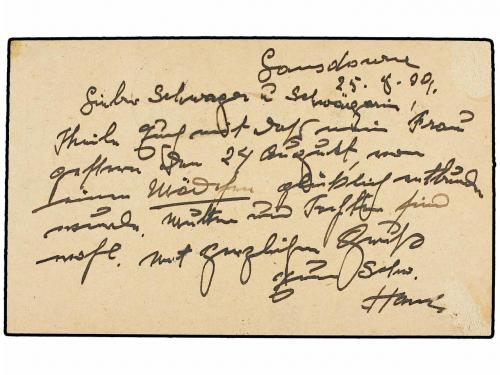 Lansdowne
25. 8. 09.
Lieber Schwager u Schwägerin!
Theile Euch mit daß mein Frau
gestern den 24 August, von
einem Mädchen glücklich entbunden
wurde. Mutter und Tochter sind
wohl. Mit herzlichen Gruß
Euer Schw.
Hans